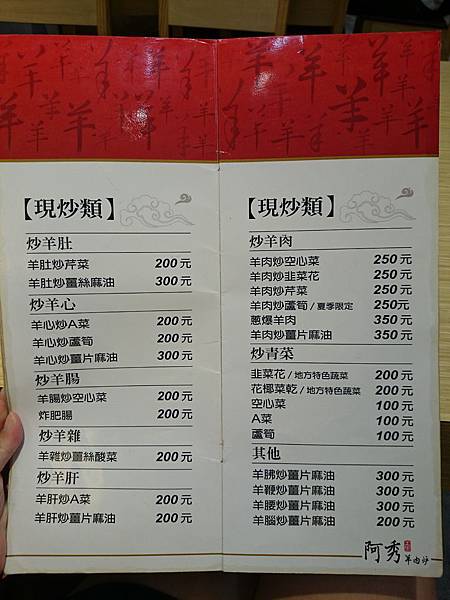 【現炒類】
炒羊肚
羊肚炒芹菜 200元
羊肚炒薑絲麻油 300元
炒羊心
羊心炒A菜 200元
羊心炒蘆筍 200元
羊心炒薑片麻油 300元
炒羊腸
羊腸炒空心菜 200元
炸肥腸 200元
炒羊雜
羊雜炒薑絲酸菜 200元
炒羊肝
羊肝炒A菜 200元
羊肝炒薑片麻油 200元
【現炒類】
炒羊肉
羊肉炒空心菜 250元
羊肉炒韭菜花 250元
羊肉炒芹菜 250元
羊肉炒蘆筍/夏季限定 250元
蔥爆羊肉 350元
羊肉炒薑片麻油 350元
炒青菜
韭菜花/地方特色蔬菜 200元
花椰菜乾/地方特色蔬菜 200元
空心菜 100元
A菜 100元
蘆筍 100元
其他
羊脯炒薑片麻油 300元
羊鞭炒薑片麻油 300元
羊腰炒薑片麻油 300元
羊腦炒薑片麻油 200元
阿秀羊肉爐